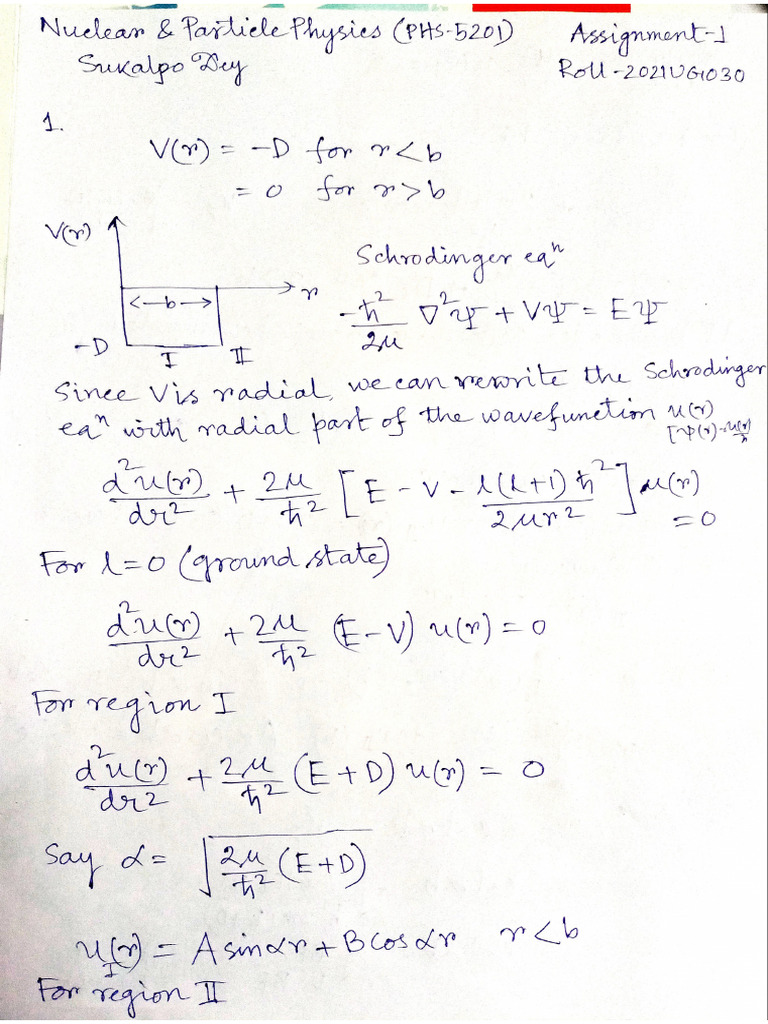 Nuclear & Particle Physics (PHS-5201) Assignment-1
Sukalpo Dey Roll-2021UG1030
1.
V(r) = -D for r<b
= 0 for r>b
V(r)
Schrodinger eqⁿ
<-b-> r
-ħ²/2μ ∇²Ψ + VΨ = EΨ
-D I II
Since V is radial, we can rewrite the Schrodinger
eqⁿ with radial part of the wavefunction u(r)
[ψ(r)=u(r)/r
d²u(r)/dr² + 2μ/ħ² [E - V - l(l+1)ħ²/2μr²] u(r)
=0
For l=0 (ground state)
d²u(r)/dr² + 2μ/ħ² (E-V) u(r) = 0
For region I
d²u(r)/dr² + 2μ/ħ² (E+D) u(r) = 0
Say α = √(2μ/ħ² (E+D))
u_I(r) = A sinαr + B cosαr r<b
For region II